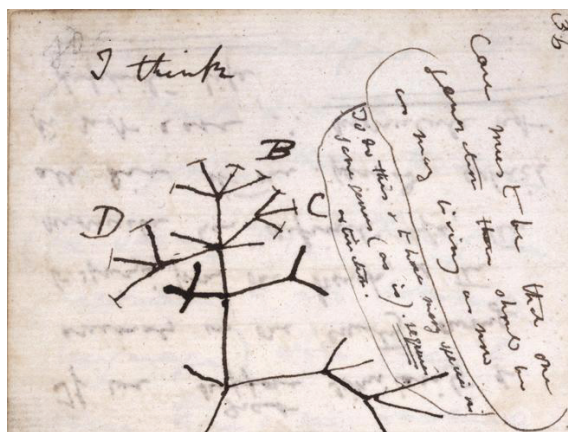 36
I think
Case must be that one
generation then should be
as many living as now
To do this & to have many species in
same genus (as is). requires
extinction.
B
C
D